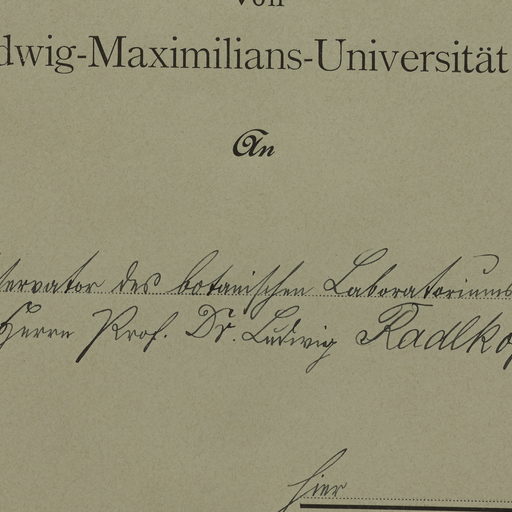 von
dwig-Maximilians-Universität
An
servator des botanischen Laboratoriums
Herrn Prof. Dr. Ludwig Radlko
hier